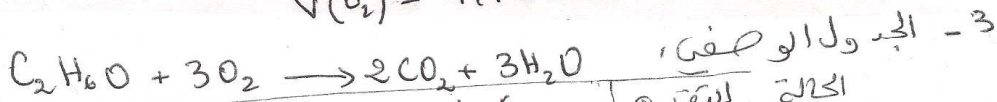 V(O₂) =
3 - الجدول الوصفي،
C₂H₆O + 3O₂ ⟶ 2CO₂ + 3H₂O
الحالة التقدم